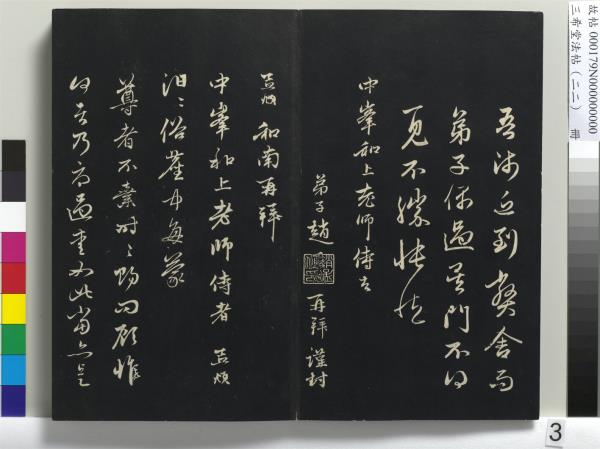 吾師近到弊舍而
弟子偶過吳門不得
見不勝悵怏
中峯和上老師侍者
弟子趙 再拜謹封
孟頫和南再拜
中峯和上老師侍者孟頫
汩汩俗塵中每蒙
尊者不棄時時賜問顧惟
何者乃辱過愛如此當亦是
故帖 000179N000000000
三希堂法帖(二二) 冊
3